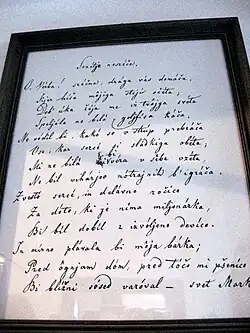 O Verba! srečna, draga vas domača,
Kjer hiša mojiga stoji očeta;
Deb' uka žeja me iz tvojga svéta
Speljála ne bilà, goljfiva kača.
Ne védil bi, kakó se v strup prebráča
Vse, kar sercé si sladkiga obéta;
Mi ne bilà bi vera v sebe vzéta,
Ne bil viharjov nótrajnih b' igráča.
Zvestó sercé, in délavno ročico
Za dóto, ki je nima milijonárka,
Bi bil dobil z izvóljeno devico.
mirno plávala bi mója bárka;
Pred ógnjam dóm, pred tóčo mi pšenico
Bi bližni sósed varóval – svet Mark